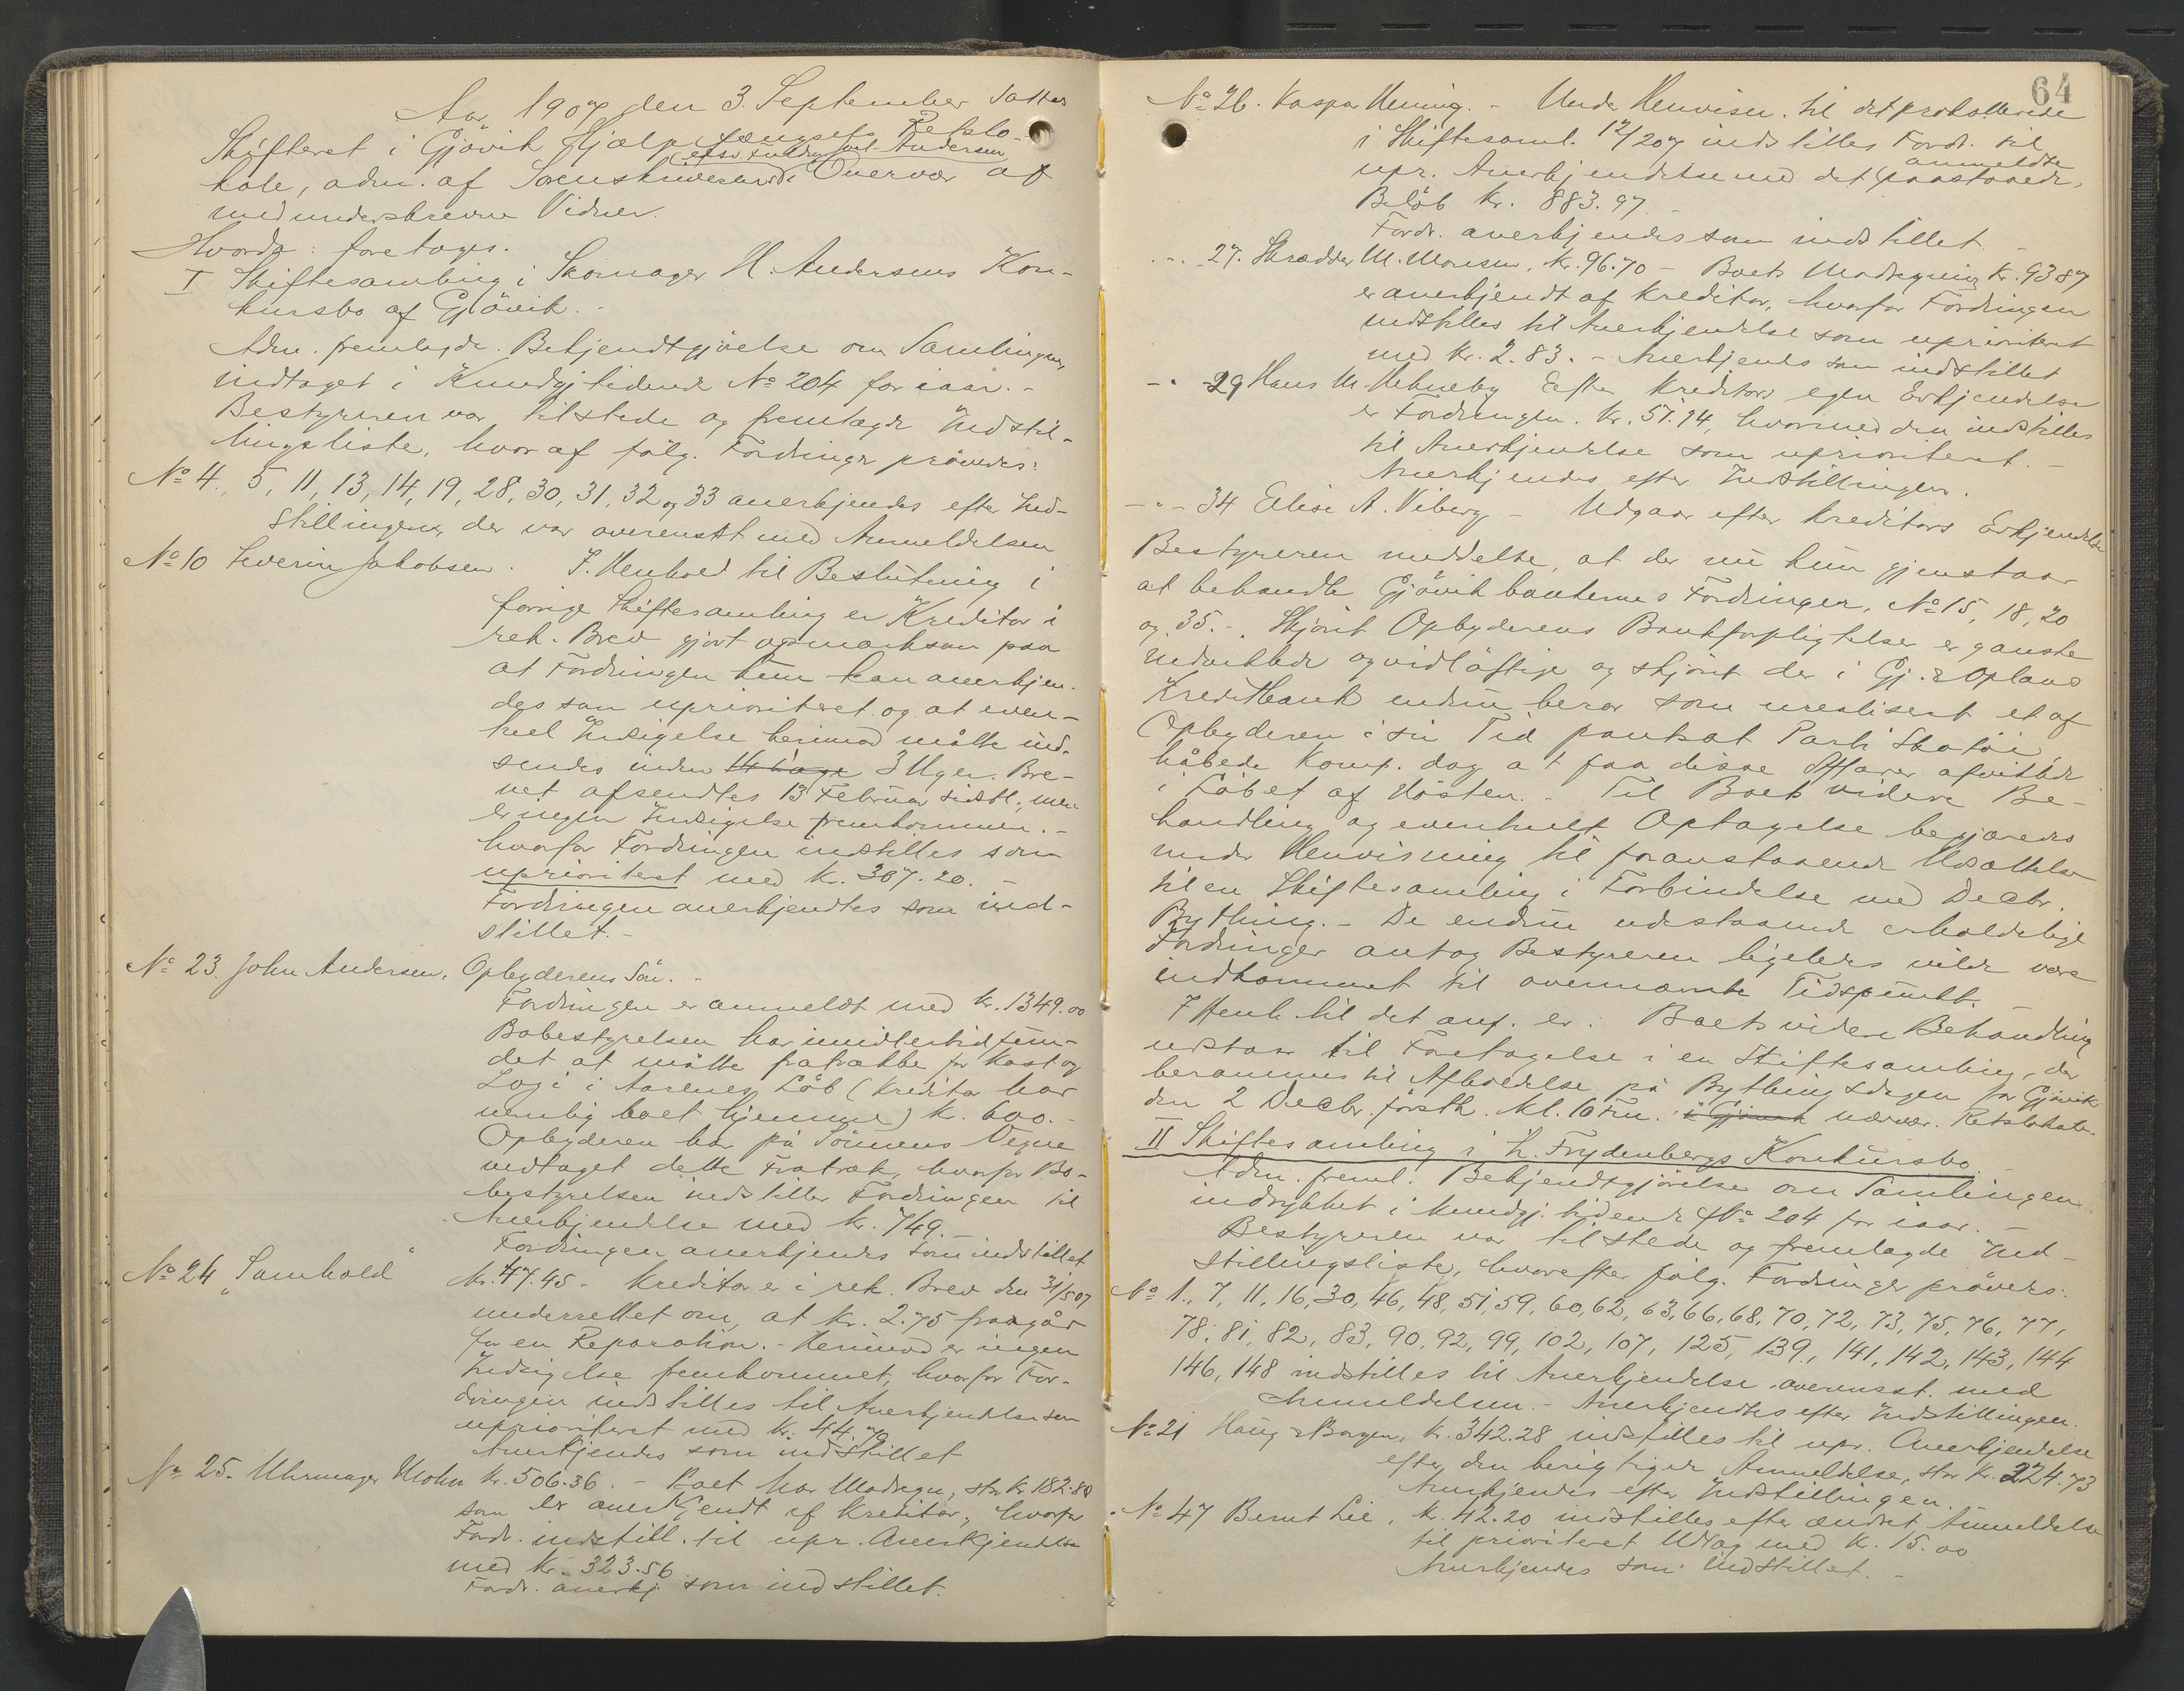 Aar 1907 den 3. September sattes
Skifteret i Gjövik Hjælpefængsels Retslo-
kale, adm. af Sorenskriverens
efter Fuldm. Andersen
Overvær af
medunderskrevne Vidner.
Hvorda: foretoges.
I Skiftesamling i Skomager H. Andersens Kon-
kursbo af Gjövik. -
Adm. fremlagde Bekjendtgjörelse om Samlingen,
indtaget i Kundgj.tidende No 204 for iaar. -
Bestyreren var tilstede og fremlagde Indstil-
lingsliste, hvoraf fölg. Fordringer prövedes:
No 4., 5, 11, 13, 14, 19, 28, 30, 31, 32 og 33 anerkjendes efter Ind-
stillingen, der var overensst med Anmeldelsen
No 10 Severin Jakobsen. I Henhold til Beslutning i
forrige Skiftesamling er Kreditor i
rek. Brev gjort opmærksom paa
at Fordringen kun kan anerkjen-
des som uprioriteret og at even-
tuel Indsigelse herimod måtte ind-
sendes inden 14 dage 3 Uger. Bre-
vet afsendtes 13 Februar sidstl., men
er ingen Indsigelse fremkommen. -
hvorfor Fordringen indstilles som
uprioritert med Kr. 307.20. -
Fordringen anerkjendtes som ind-
stillet. -
No 23. John Andersen, Opbyderens Sön. -
Fordringen er anmeldt med Kr. 1349.00
Bobestyrelsen har imidlertid fun-
det at måtte fratrække for Kost og
Logi i Aarenes Löb (Kreditor har
nemlig boet hjemme) K. 600. -
Opbyderen har på Sönnens Vegne
vedtaget dette Fratræk, hvorfor Bo-
bestyrelsen indstiller Fordringen til
Anerkjendelse med Kr. 749. -
Fordringen anerkjendes som indstillet
No 24 "Samhold" Kr. 47.45. Kreditor er i rek. Brev den 31/5 07
underrettet om, at Kr. 2.75 fragår
for en Reparation. - Herimod er ingen
Indsigelse fremkommet, hvorfor For-
dringen indstilles til Anerkjendelse som
uprioriteret med Kr. 44.70
Anerkjendes som indstillet
No 25. Uhrmager Mohn Kr. 506.36. - Boet har Modregn., stor Kr. 182.80
som er anerkjendt af Kreditor, hvorfor
Fordr. indstill. til upr. Anerkjendelse
med Kr. 323.56
Fordr. anerkj. som indstillet.
64
No 26. Kaspar Henning. - Under Henvisn. til det protokollerede
i Skiftesaml. 12/2 07 indstilles Fordr. til
upr. Anerkjendelse med det paastaaede
anmeldte
Belöb Kr. 883.97
Fordr. anerkjendes som indstillet. -
- " - 27. Skrædder M. Monsen, Kr. 96.70 - Boets Modregning Kr. 93.87
er anerkjendt af Kreditor, hvorfor Fordringen
indstilles til Anerkjendelse som uprioriteret
med Kr. 2.83. - Anerkjendes som indstillet
- " 29 Hans M. Efter Kreditors egen Erkjendelse
er Fordringen Kr. 51.14, hvormed den indstilles
til Anerkjendelse som uprioriteret. -
Anerkjendes efter Indstillingen.
- " - 34 Elise A. Viberg - Udgaar efter Kreditors Erkjendelse
Bestyreren meddelte, at der nu kun gjenstaar
at behandle Gjövikbankernes Fordringer, No 15, 18, 20
og 35. - Skjönt Opbyderens Bankforpligtelser er ganske
indviklede og vidlöftige og skjönt der i Gj. & Oplands
Kreditbank endnu beror som urealisert et af
Opbyderen i sin Tid pantsat Parti Skotöi,
håbede Komp. dog at faa disse Affærer afviklede
i Löbet af Hösten. - Til Boets videre Be-
handling og eventuelt Optagelse begjæredes
under Henvisning til foranstaaende Udsættelse
til en Skiftesamling i Forbindelse med Decbr.
Bything. - De endnu udestaaende erholdelige
Fordringer antog Bestyreren ligeledes vilde være
indkommet til ovennævnte Tidspunkt. -
I Henh. til det anf. er: Boets videre Behandling
udstaar til Foretagelse i en Skiftesamling, der
berammes til Afholdelse på Bythingsdagen for Gjövik
den 2 Decbr. förstk. Kl. 10 Fm. i Gjövik nærvær. Retslokale.
II Skiftesamling i H. Frydenbergs Konkursbo.
Adm. freml. Bekjendtgjörelse om Samlingen
indrykket i Kundgj.tidende No 204 for iaar. -
Bestyreren var tilstede og fremlagde Ind-
stillingsliste, hvorefter fölg. Fordringer prövedes:
No 1., 7, 11, 16, 30, 46, 48, 51, 59, 60, 62, 63, 66, 68, 70, 72, 73, 75, 76, 77,
78, 81, 82, 83, 90, 92, 99, 102, 107, 125, 139., 141, 142, 143, 144
146, 148 indstilles til Anerkjendelse overensst. med
Anmeldelsen. - Anerkjendtes efter Indstillingen.
No 21 Haug & Borgen, Kr. 342.28 indstilles til upr. Anerkjendelse
efter den berigtigede Anmeldelse, stor Kr. 224.73
Anerkjendes efter Indstillingen.
No 47 Bernt Lie, Kr. 42.20 indstilles efter ændret Anmeldelse
til prioriteret Udlæg med K. 15.00
Anerkjendes som indstillet. -